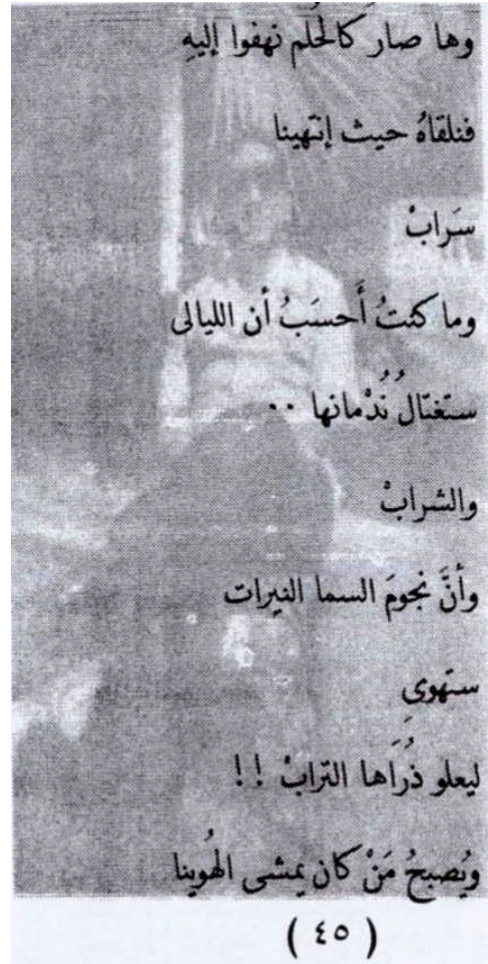 وها صار كالحُلم نهفوا إليهِ
فنلقاهُ حيث إنتهينا
سَرابْ
وما كنتُ أَحسَبُ أن الليالى
ستغتالُ نُدْمانها ..
والشرابْ
وأنَّ نجومَ السما النيرات
ستهوىِ
ليعلو ذُرَاها الترابْ !!
ويُصبحُ مَنْ كان يمشى الهُوينا
( ٤٥ )